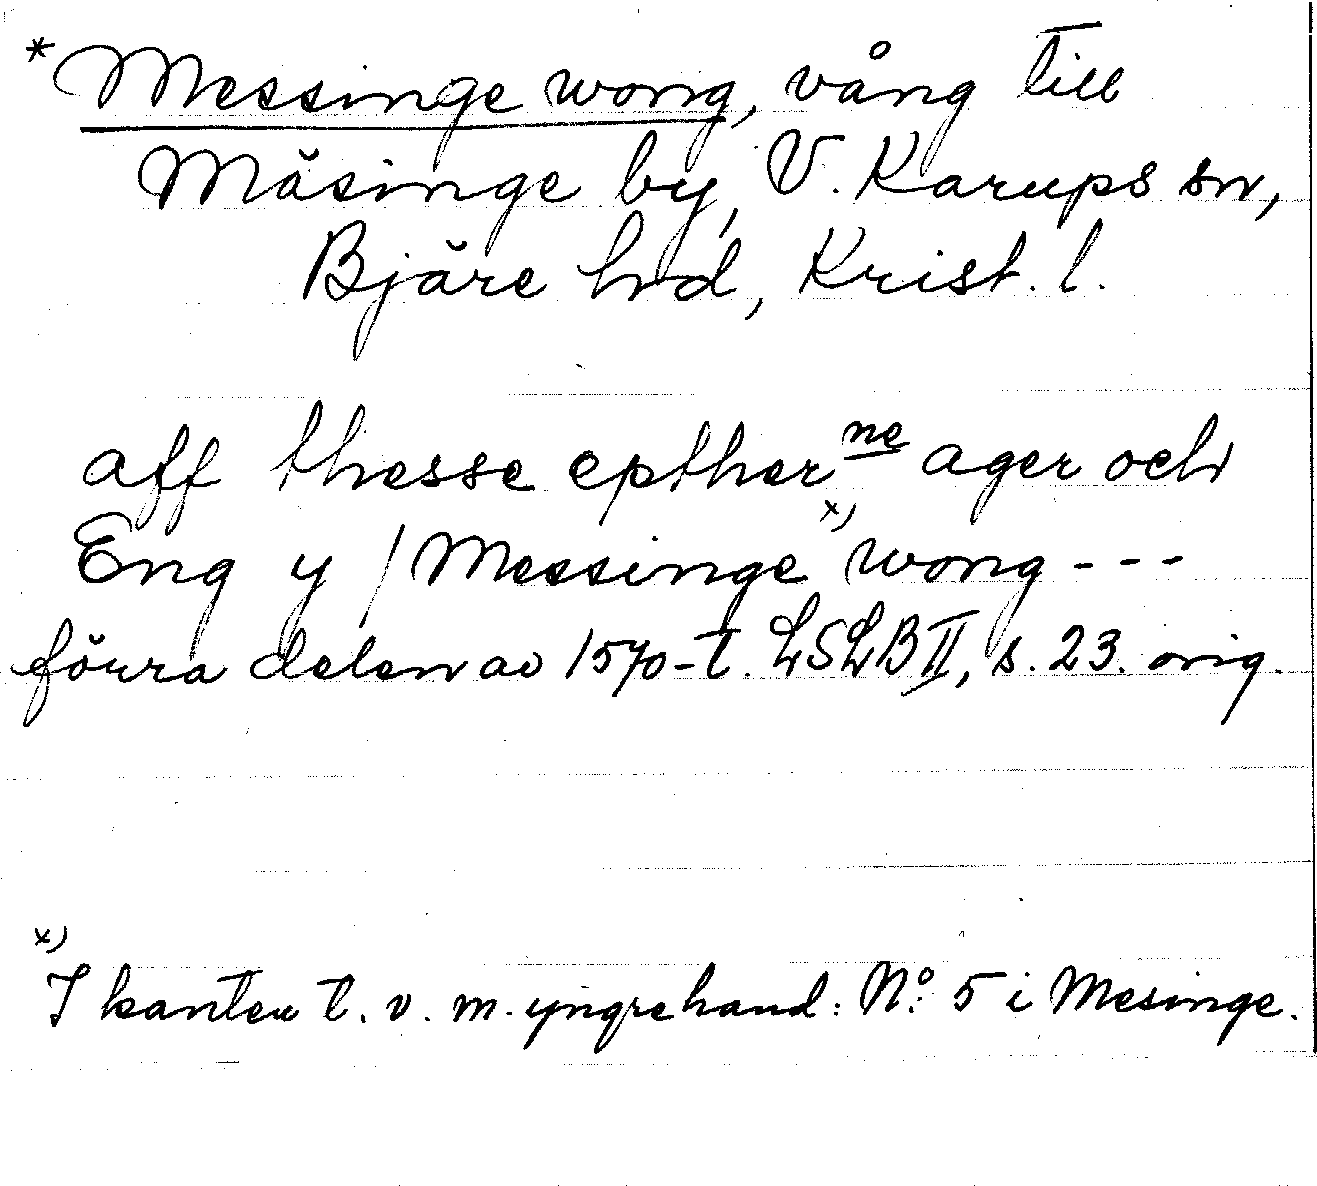 *Messinge wong, vång till
Mäsinge by, V. Karups sn,
Bjäre hd, Krist. l.
aff thesse epther ne ager och
Eng y / Messinge x) wong - - -
förra delen av 1570-t. LSLB II, s. 23. orig.
x) I kanten t. v. m. yngre hand: No. 5 i Mesinge.